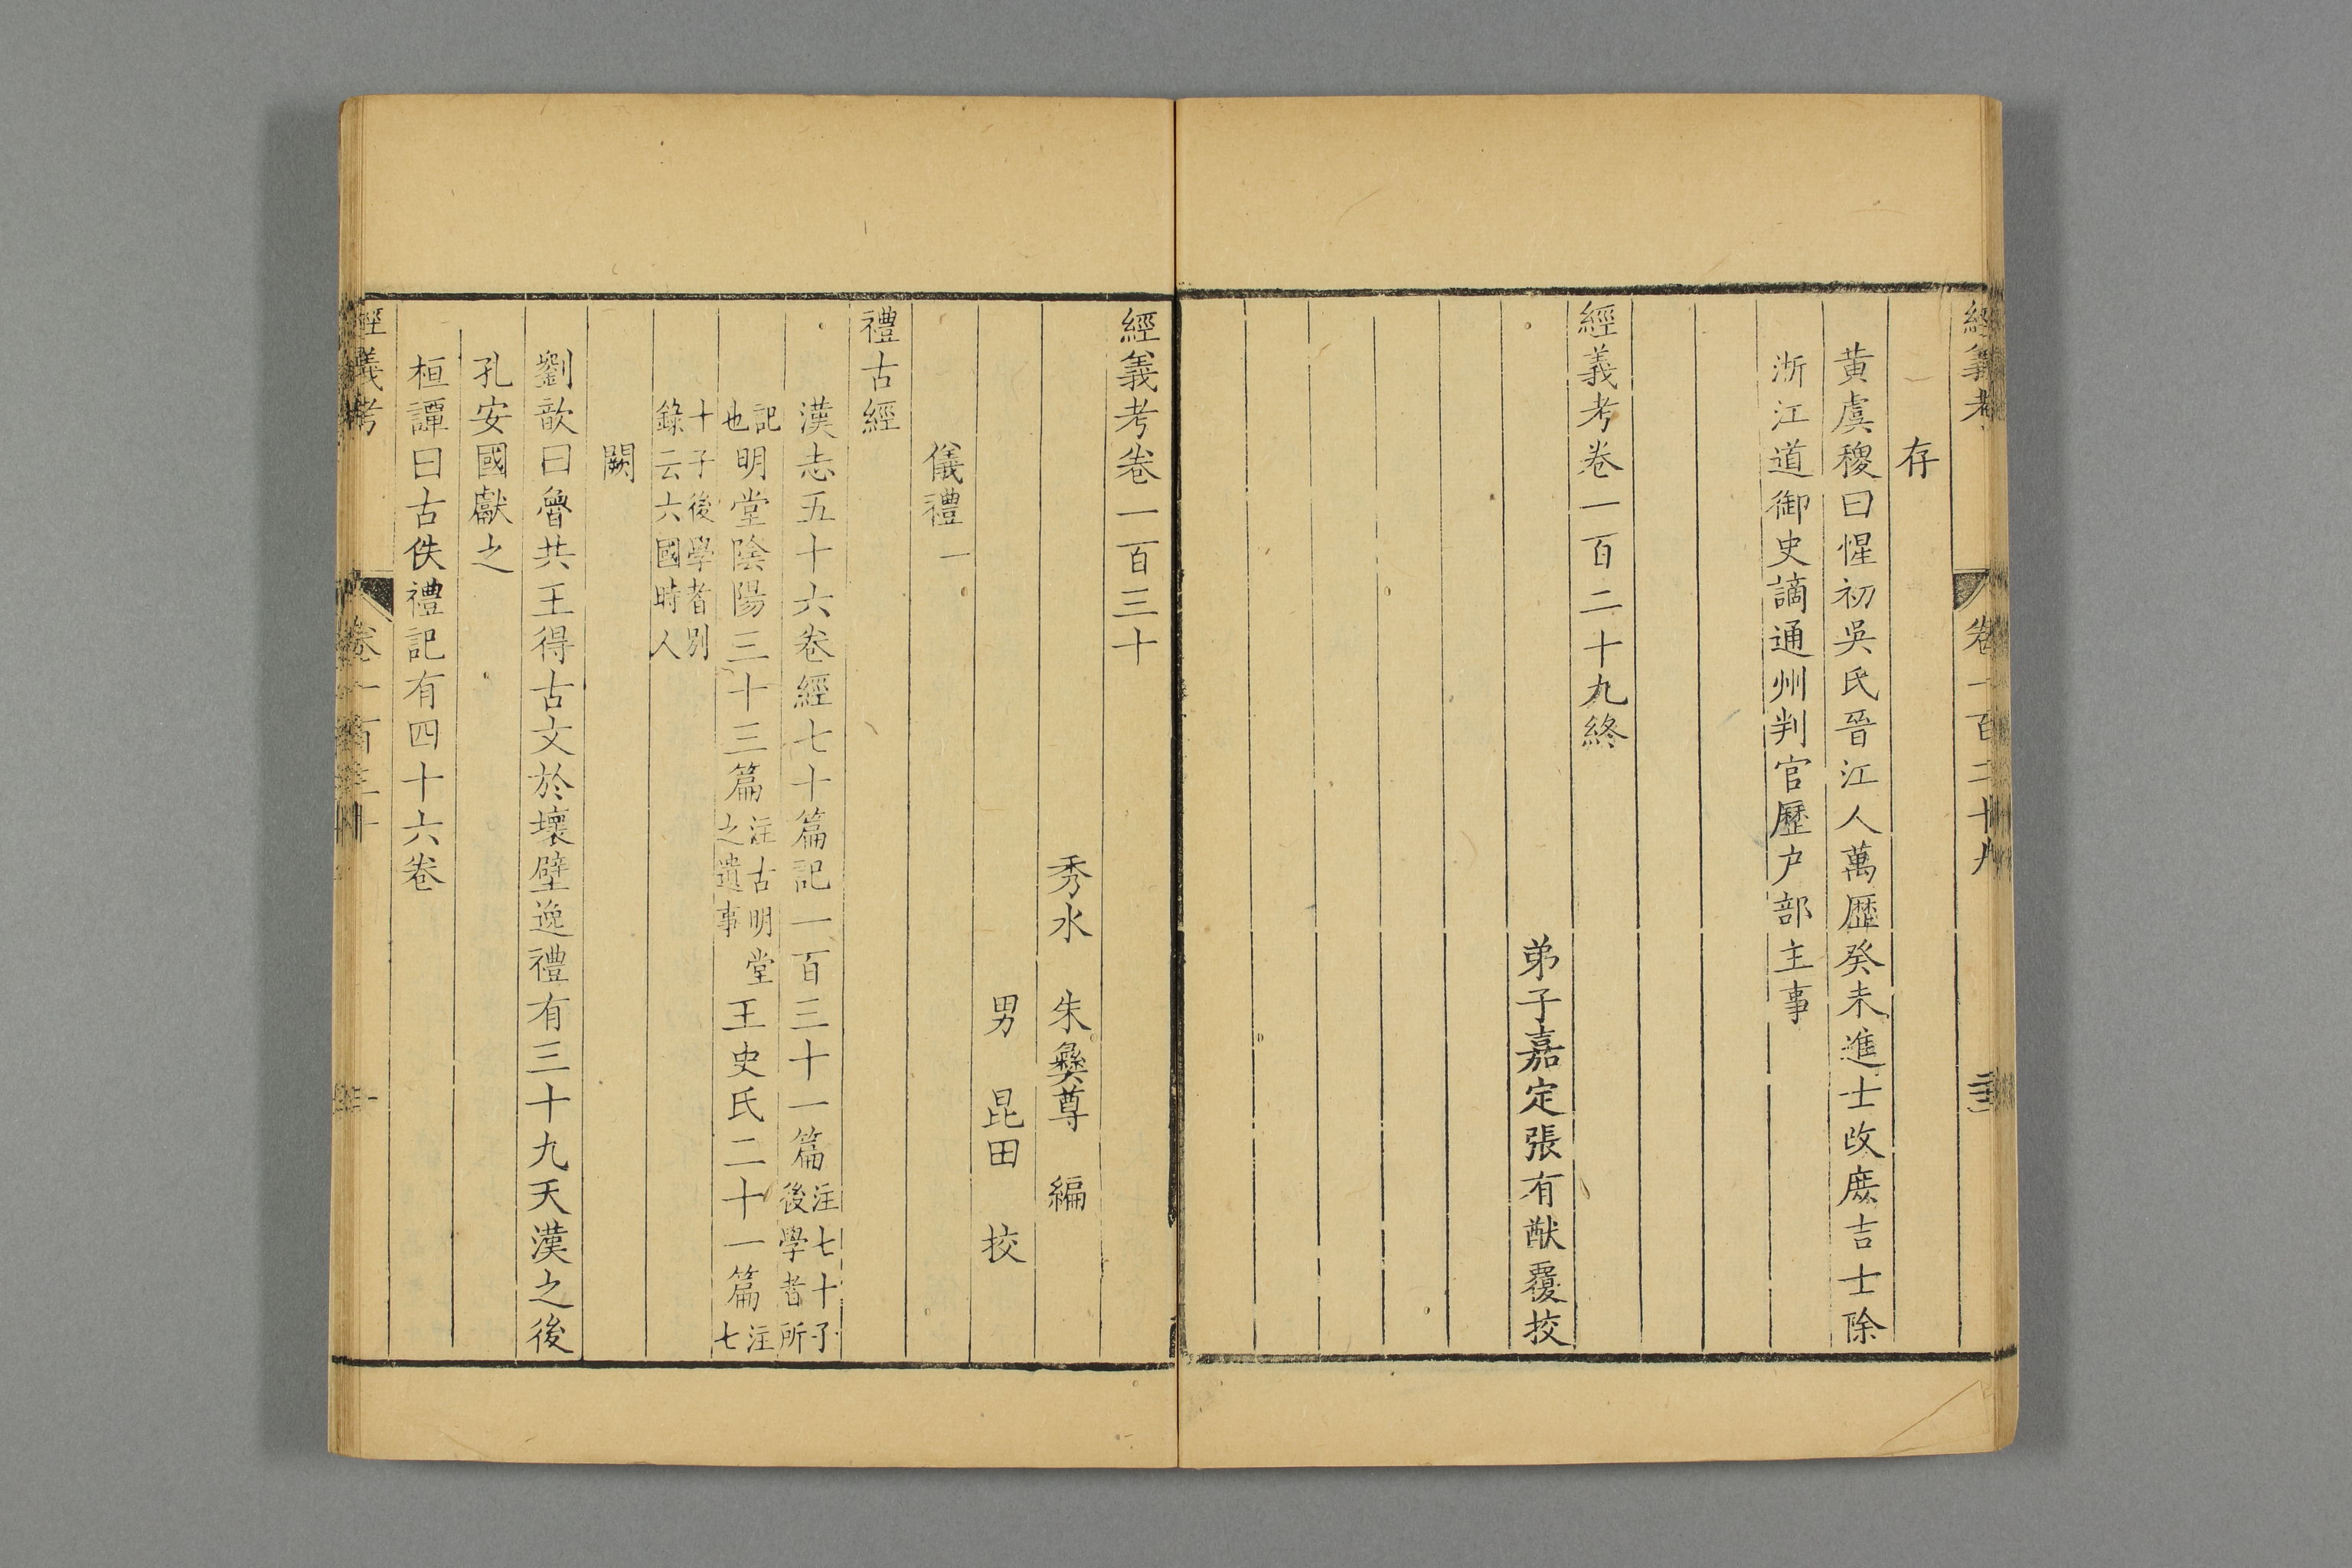 經義考 卷一百二十九
存
黃虞稷曰惺初吳氏晉江人萬歷癸未進士改庶吉士除
浙江道御史謫通州判官歷户部主事
經義考卷一百二十九終
弟子嘉定張有猷覆挍
經義考卷一百三十
秀水 朱彝尊 編
男 昆田 挍
儀禮一
禮古經
漢志五十六卷經七十篇記一百三十一篇注七十子後學者所
記也明堂陰陽三十三篇注古明堂之遺事王史氏二十一篇注七
十子後學者别錄云六國時人
闕
劉歆曰魯共王得古文於壞壁逸禮有三十九天漢之後
孔安國獻之
桓譚曰古佚禮記有四十六卷
經義考 卷一百三十 一